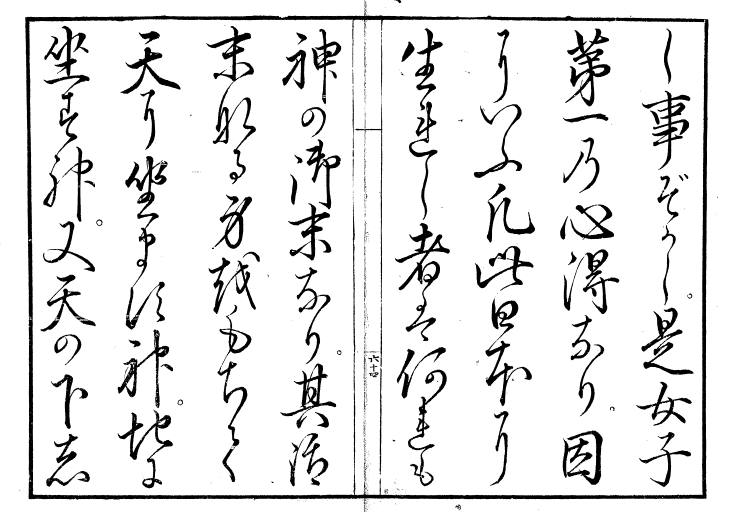 し事ぞかし。是女子
第一乃心得なり。因
にいふ凡此日本に
生れし者は何れも
六十四
神の御末なり。其
末なる身をもちて
天に坐ます神。地に
坐す神。又天の下し